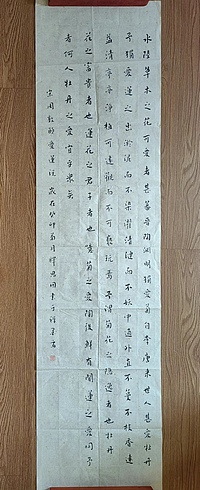 水陸草木之花可愛者甚蕃晋陶渊明獨愛菊自李唐来世人甚愛牡丹
予獨愛蓮之出淤泥而不染濯清漣而不妖中通外直不蔓不枝香遠
益清亭亭淨植可遠觀而不可褻玩焉予謂菊花之隱逸者也牡丹
花之富貴者也蓮花之君子者也噫菊之愛陶後鮮有聞蓮之愛同予
者何人牡丹之愛宜乎衆矣
宋周敦頤愛蓮說 歲在癸卯菊月